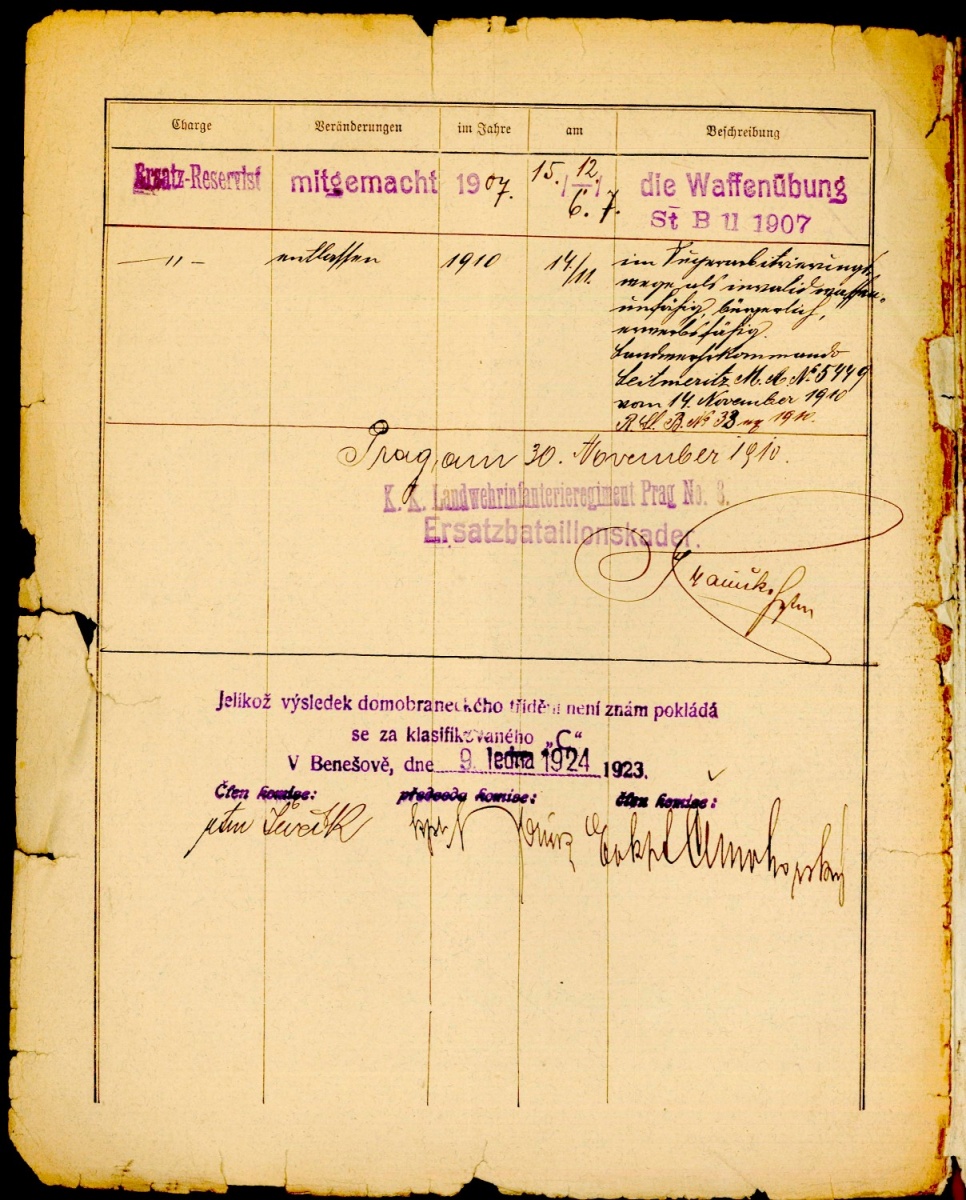 Charge Veränderungen im Jahre am Beschreibung
Ersatz-Reservist mitgemacht 1907. 15./12./6. 7. die Waffenübung
St B II 1907
—〃— entlassen 1910 14./11. im Superarbitrierungs
wege als invalid waffen-
unfähig, bürgerlich,
erwerbsfähig.
Landwehrkommando
Leitmeritz M. A. No 5449
vom 14. November 1910
B. No 33 1910.
Prag, am 30. November 1910.
K. K. Landwehrinfanterieregiment Prag No. 8.
Ersatzbataillonskader.
Jelikož výsledek domobraneckého třídění není znám pokládá
se za klasifikovaného „C“
V Benešově, dne 9. ledna 1924 1923.
Člen komise: předseda komise: člen komise: